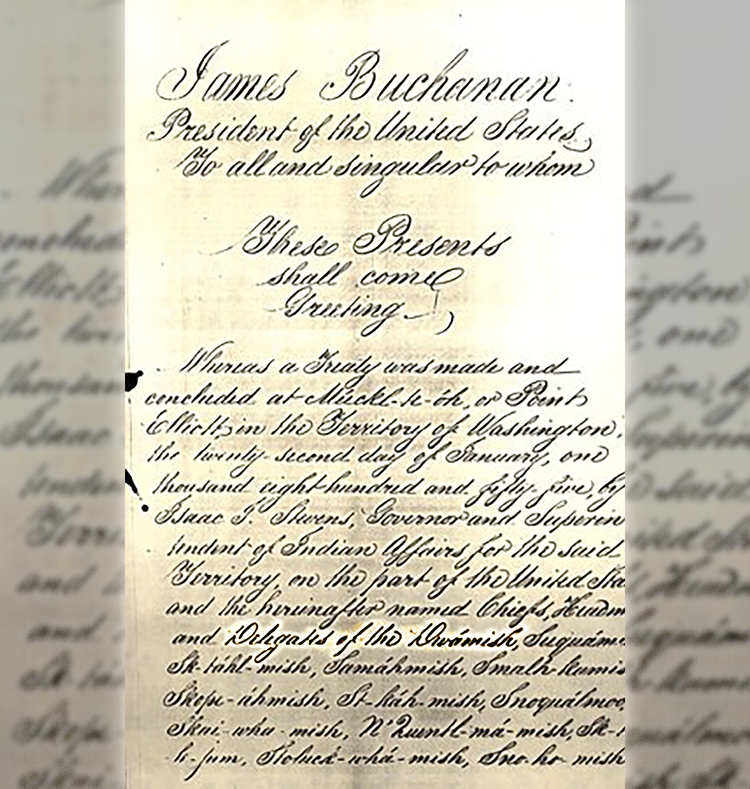 James Buchanan.
President of the United States,
To all and singular to whom
These Presents
shall come
Greeting
Whereas a Treaty was made and
concluded at Múckl-te-óh, or Point
Elliott, in the Territory of Washington,
the twenty-second day of January, one
thousand eight hundred and fifty-five, by
Isaac I. Stevens, Governor and Superin
tendent of Indian Affairs for the said
Territory, on the part of the United Sta
and the hereinafter named Chiefs, Headm
and Delegates of the Dwámish, Suquám
Sk-táhl-mish, Samáhmish, Smalh-kamis
Skope-áhmish, St-káh-mish, Snoquálmoo,
Skai-wha-mish, N'Quentl-má-mish, Sk-t
le-jum, Stoluck-whá-mish, Sno-ho-mish